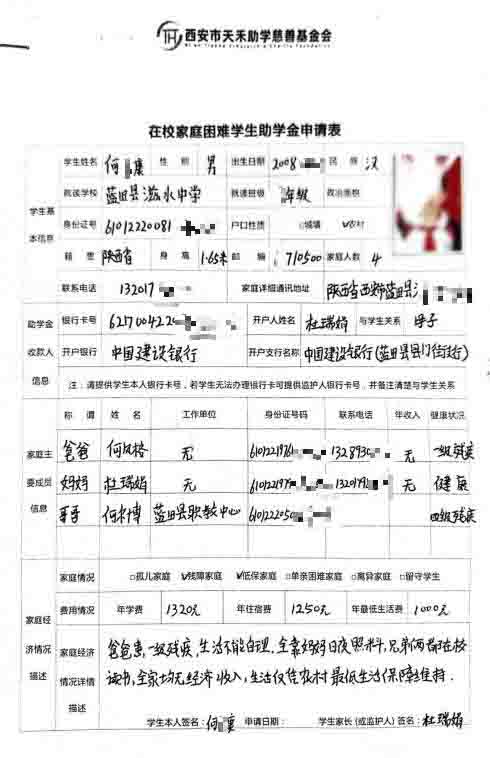 西安市天禾助学慈善基金会
在校家庭困难学生助学金申请表
学生基本信息
学生姓名 何 康 性别 男 出生日期 2008 民族 汉
就读学校 蓝田县滋水中学 就读班级 年级 政治面貌
身份证号 61012220081 户口性质 □城镇 √农村
籍贯 陕西省 身高 1.65米 邮编 710500 家庭人数 4
联系电话 132017 家庭详细通讯地址 陕西省西安市蓝田县
助学金收款人信息
银行卡号 6217004222 开户人姓名 杜瑞娟 与学生关系 母子
开户银行 中国建设银行 开户支行名称 中国建设银行(蓝田县县门街支行)
注:请提供学生本人银行卡号,若学生无法办理银行卡可提供监护人银行卡号,并备注清楚与学生关系
家庭主要成员信息
称谓 姓名 工作单位 身份证号码 联系电话 年收入 健康状况
爸爸 何 格 无 6101221976 1328930 无 一级残疾
妈妈 杜瑞娟 无 610122197 132017 无 健康
哥哥 何 博 蓝田县职教中心 610122200 四级残疾
家庭经济情况描述
家庭情况 □孤儿家庭 √残障家庭 √低保家庭 □单亲困难家庭 □离异家庭 □留守学生
费用情况 年学费 1320元 年住宿费 1250元 年最低生活费 1000元
家庭经济情况详情描述
爸爸患一级残疾,生活不能自理,全靠妈妈日夜照料,兄弟两都在校
读书,全家均无经济收入,生活仅凭农村最低生活保障维持.
学生本人签名: 何 康 申请日期: 学生家长(或监护人)签名: 杜瑞娟